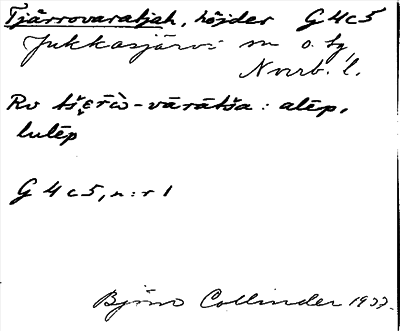 Tjärrovaratjah, höjder G 4 c 5
Jukkasjärvi sn o. tg,
Norrb. l.
Rv tšęrò-vārātša: alēp,
lulēp
G 4 c 5, n:r 1
Björn Collinder 1933.